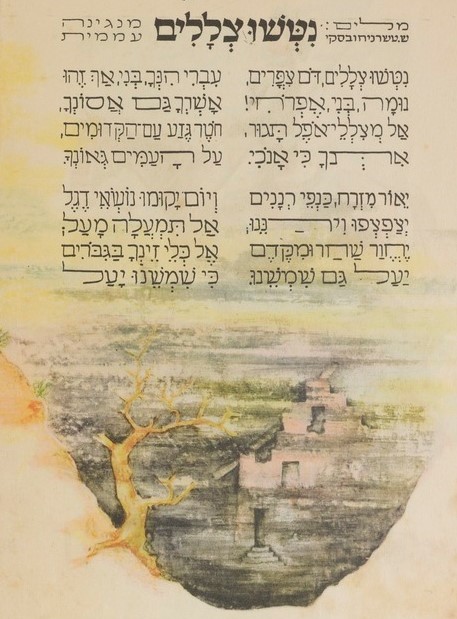 מלים:
ש. טשרניחובסקי
נִטְּשׁוּ צְלָלִים
מנגינה
עממית
נִטְּשׁוּ צְלָלִים, דֹּם צִפֳּרִים,
נוּמָה, בְּנִי, אֶפְרֹחִי!
אַל מִצִּלְלֵי־אֹפֶל תָּגוּר,
כִּי אָנֹכִי.
עִבְרִי הִנְּךָ, בְּנִי, אַךְ זֶהוּ
אָשְׁרְךָ גַּם אֲסוֹנְךָ,
חֹטֶר גֶּזַע עַם־הַקְּדוּמִים,
עַל הָעַמִּים גְּאוֹנְךָ
יֵאוֹר מִזְרָח, כַּנְפֵי רְנָנִים
יְצַפְצְפוּ וִירַנֵּנוּ,
יֶחֱוַר שַׁחַר וּמִקֶּדֶם
יַעַל גַּם שִׁמְשֵׁנוּ.
וְיוֹם יָקוּמוּ נוֹשְׂאֵי דֶגֶל
אַל תִּתְמַעֲלָה מַעַל;
אֶל כְּלֵי זֵינְךָ בַּגִּבֹּרִים
כִּי שִׁמְשֵׁנוּ יַעַל